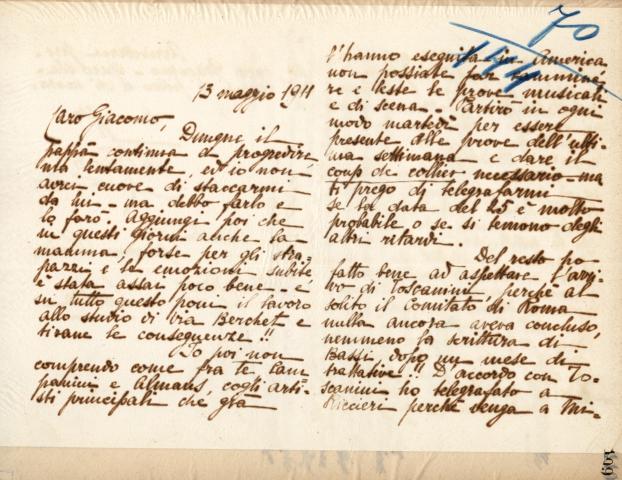 13 maggio 1911
Caro Giacomo,
Dunque il
pappà continua a progredire
ma lentamente, ed io non
avrei cuore di staccarmi
da lui - ma debbo farlo e
lo farò. Aggiungi poi che
in questi giorni anche la
mamma, forse per gli stra-
pazzi e le emozioni subite
è stata assai poco bene - è
su tutto questo poni il lavoro
allo studio di Via Berchet e
tirane le conseguenze!!
Io poi non
comprendo come fra te, Cam
panini e Almans, cogli arti-
sti principali che già
70
l'hanno eseguita in America
non possiate far cammina
re e leste le prove musicali
e di scena. Partirò in ogni
modo martedì per essere
presente alle prove dell'ulti-
ma settimana e dare il
coup de collier necessario - ma
ti prego di telegrafarmi
se la data del 25 è molto
probabile o se si temono degli
altri ritardi.
Del resto ho
fatto bene ad aspettare l'arri-
vo di Toscanini, perchè al
solito il Comitato di Roma
nulla ancora aveva concluso,
nemmeno la scrittura di
Bassi, dopo un mese di
trattative!! D'accordo con To-
scanini ho telegrafato a
Riccieri perchè venga a Mi-
109